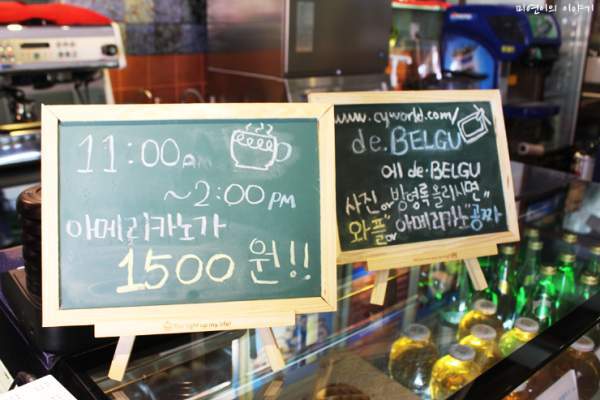 미연이의 이야기
11:00 AM
~2:00 PM
아메리카노가
1500 원!!
www.cyworld.com/
de.BELGU
에 de.BELGU
사진 or 방명록 올리시면"
와플 or 아메리카노"공짜